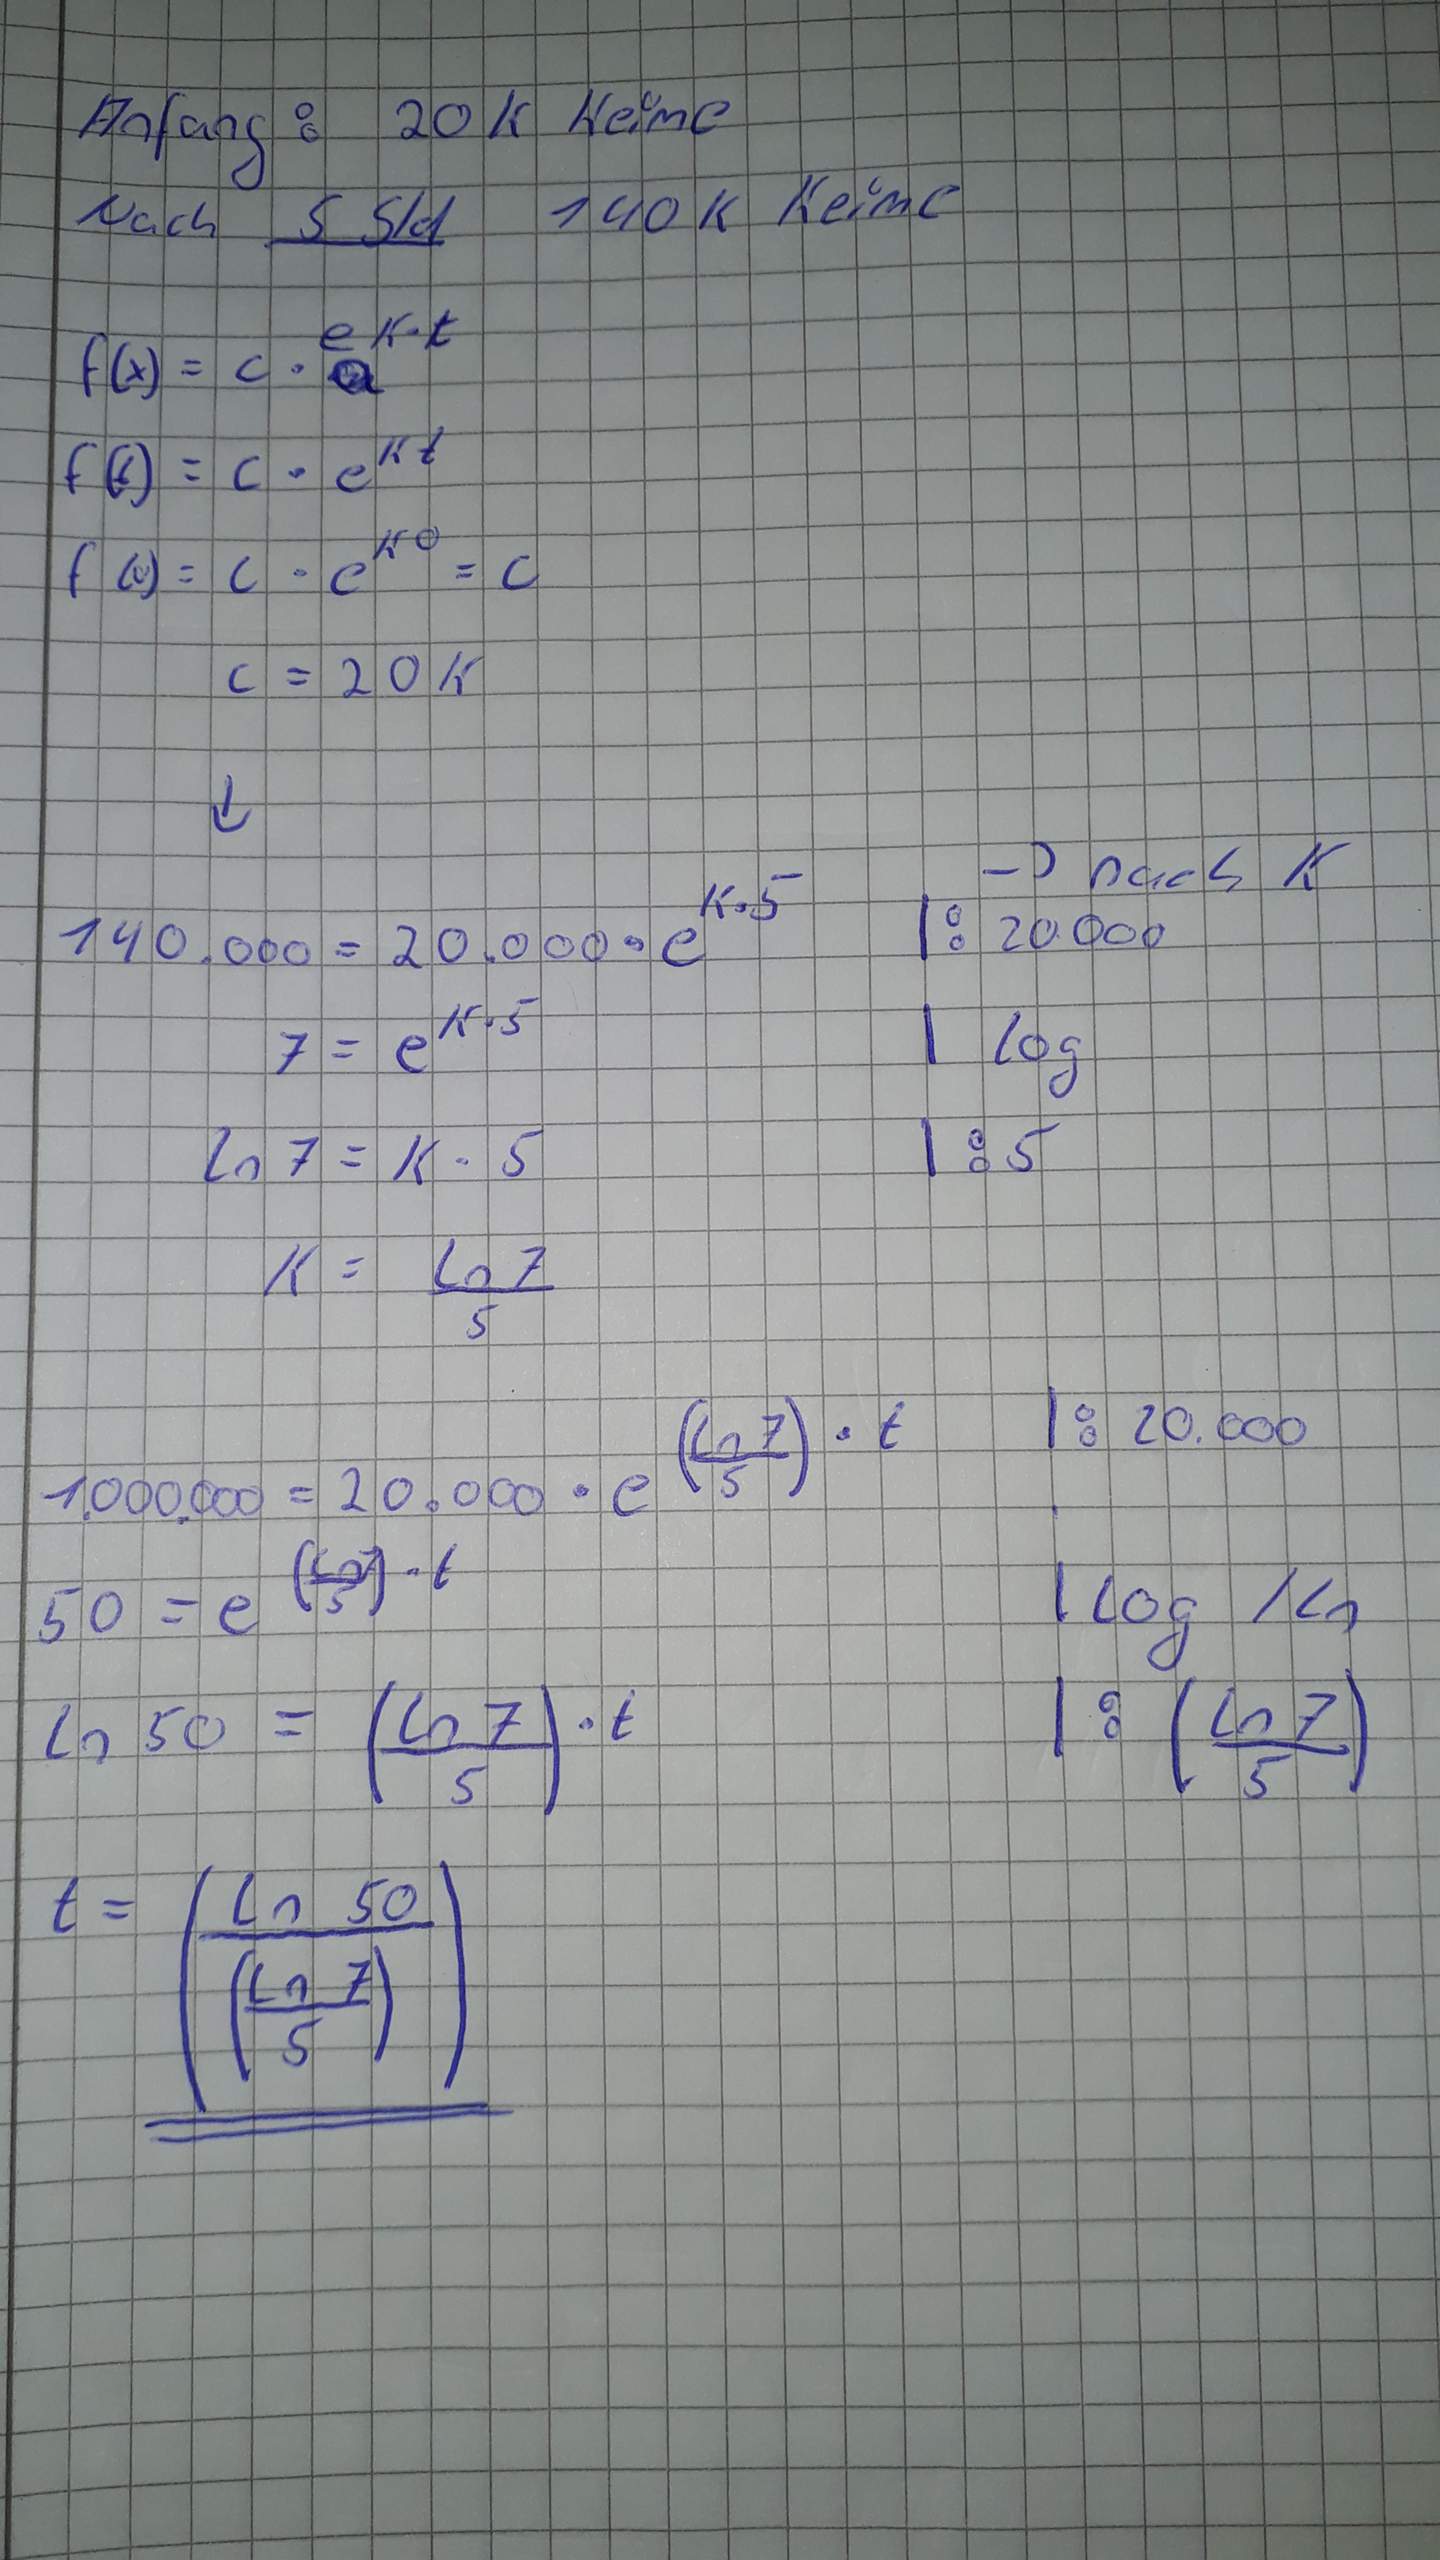 Anfang: 20K Keime
Nach 5 Std 140K Keime
f(x) = c · e^K·t
f(t) = c · e^Kt
f(0) = c · e^K0 = c
c = 20K
↓
-> nach K
140.000 = 20.000 · e^K·5 | : 20.000
7 = e^K·5 | log
ln 7 = K · 5 | : 5
K = ln 7 / 5
1.000.000 = 20.000 · e^(ln 7 / 5) · t | : 20.000
50 = e^(ln 7 / 5) · t | log / ln
ln 50 = (ln 7 / 5) · t | : (ln 7 / 5)
t = (ln 50 / (ln 7 / 5))